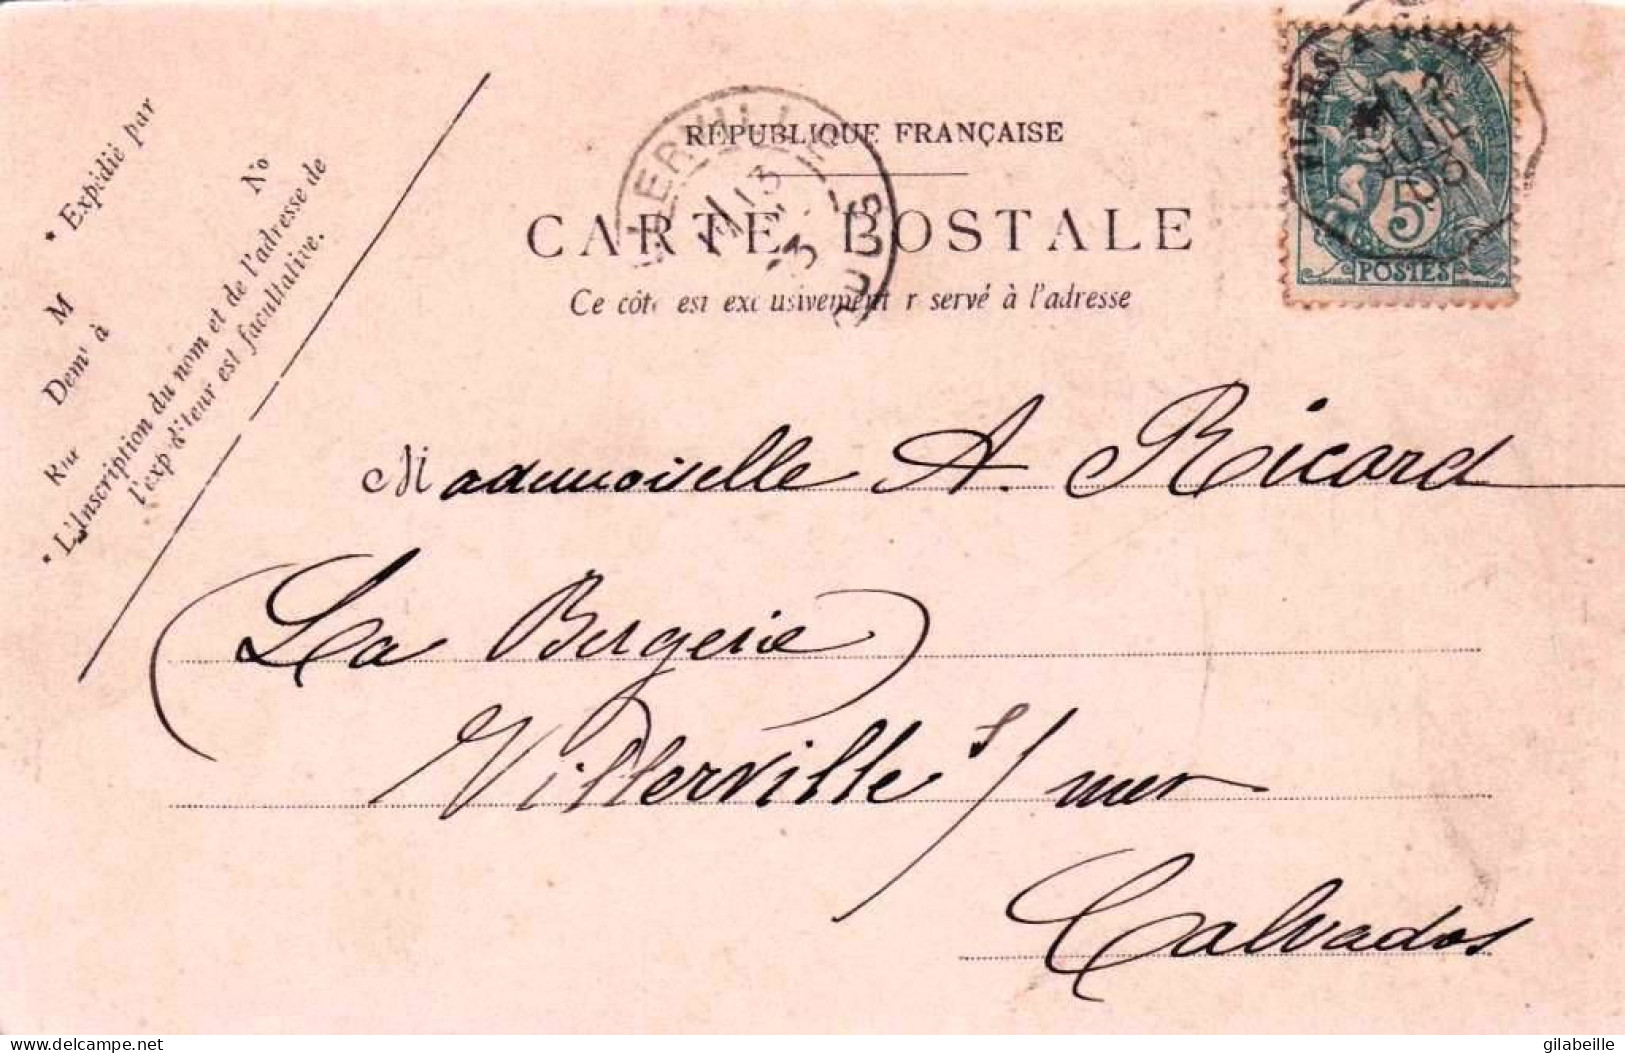 * Expédié par
M
Demt à
Rue
No
* L'Inscription du nom et de l'adresse de
l'expéditeur est facultative.
RÉPUBLIQUE FRANÇAISE
CARTE POSTALE
Ce côté est exclusivement réservé à l'adresse
FLERS A CAEN
2
JUIL
03
5
POSTES
Mademoiselle A. Ricard
(La Bergerie)
Villerville s/ mer
Calvados
delcampe.net
gilabeille